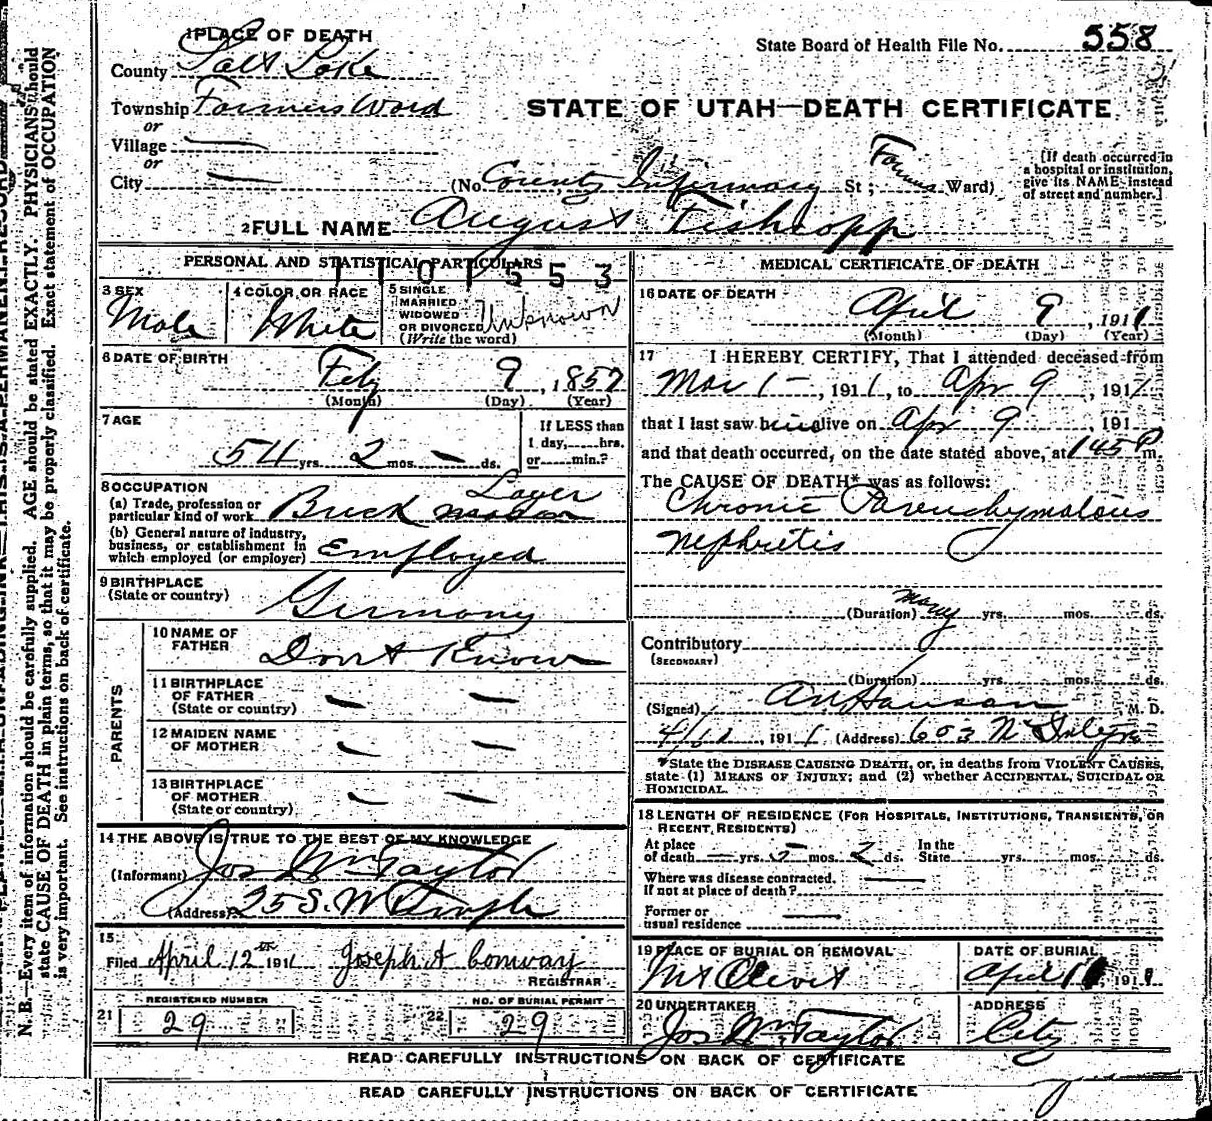 1 PLACE OF DEATH
State Board of Health File No. 558
County Salt Lake
Township Farmers Ward
or
Village —
or
City —
STATE OF UTAH—DEATH CERTIFICATE
(No. County Infirmary St; Farmers Ward)
[If death occurred in a hospital or institution, give its NAME instead of street and number.]
2 FULL NAME August Fishkopp
PERSONAL AND STATISTICAL PARTICULARS
1101553
3 SEX
Male
4 COLOR OR RACE
White
5 SINGLE MARRIED WIDOWED OR DIVORCED (Write the word)
Unknown
6 DATE OF BIRTH
Feby 9, 1857
(Month) (Day) (Year)
7 AGE
54 yrs. 2 mos. — ds.
If LESS than 1 day, hrs. or min.?
8 OCCUPATION
(a) Trade, profession or particular kind of work Brick Layer
(b) General nature of industry, business, or establishment in which employed (or employer) Employed
9 BIRTHPLACE (State or country)
Germany
PARENTS
10 NAME OF FATHER
Don't Know
11 BIRTHPLACE OF FATHER (State or country) — —
12 MAIDEN NAME OF MOTHER — —
13 BIRTHPLACE OF MOTHER (State or country) — —
14 THE ABOVE IS TRUE TO THE BEST OF MY KNOWLEDGE
(Informant) Jos Wm Taylor
(Address) 25 S. W Temple
15
Filed April 12th 1911 Joseph A Conway
REGISTRAR
21 REGISTERED NUMBER
29
22 NO. OF BURIAL PERMIT
29
MEDICAL CERTIFICATE OF DEATH
16 DATE OF DEATH
April 9, 1911
(Month) (Day) (Year)
17 I HEREBY CERTIFY, That I attended deceased from
Mar 1 —, 1911, to Apr 9, 1911
that I last saw him alive on Apr 9, 191
and that death occurred, on the date stated above, at 145 P m.
The CAUSE OF DEATH* was as follows:
Chronic Parenchymatous
nephritis
(Duration) many yrs. mos. ds.
Contributory
(SECONDARY)
(Duration) yrs. mos. ds.
(Signed) A N Hanson M. D.
1911 (Address) 603
*State the DISEASE CAUSING DEATH, or, in deaths from VIOLENT CAUSES,
state (1) MEANS OF INJURY; and (2) whether ACCIDENTAL, SUICIDAL OR
HOMICIDAL.
18 LENGTH OF RESIDENCE (FOR HOSPITALS, INSTITUTIONS, TRANSIENTS, OR
RECENT RESIDENTS)
At place of death — yrs. mos. ds. In the State yrs. mos. ds.
Where was disease contracted, If not at place of death? —
Former or usual residence —
19 PLACE OF BURIAL OR REMOVAL
Mt Olivet
DATE OF BURIAL
April 11 1911
20 UNDERTAKER
Jos Wm Taylor
ADDRESS
City
READ CAREFULLY INSTRUCTIONS ON BACK OF CERTIFICATE
READ CAREFULLY INSTRUCTIONS ON BACK OF CERTIFICATE
N. B.—Every item of information should be carefully supplied. AGE should be stated EXACTLY. PHYSICIANS should
state CAUSE OF DEATH in plain terms, so that it may be properly classified. Exact statement of OCCUPATION
is very important. See instructions on back of certificate.